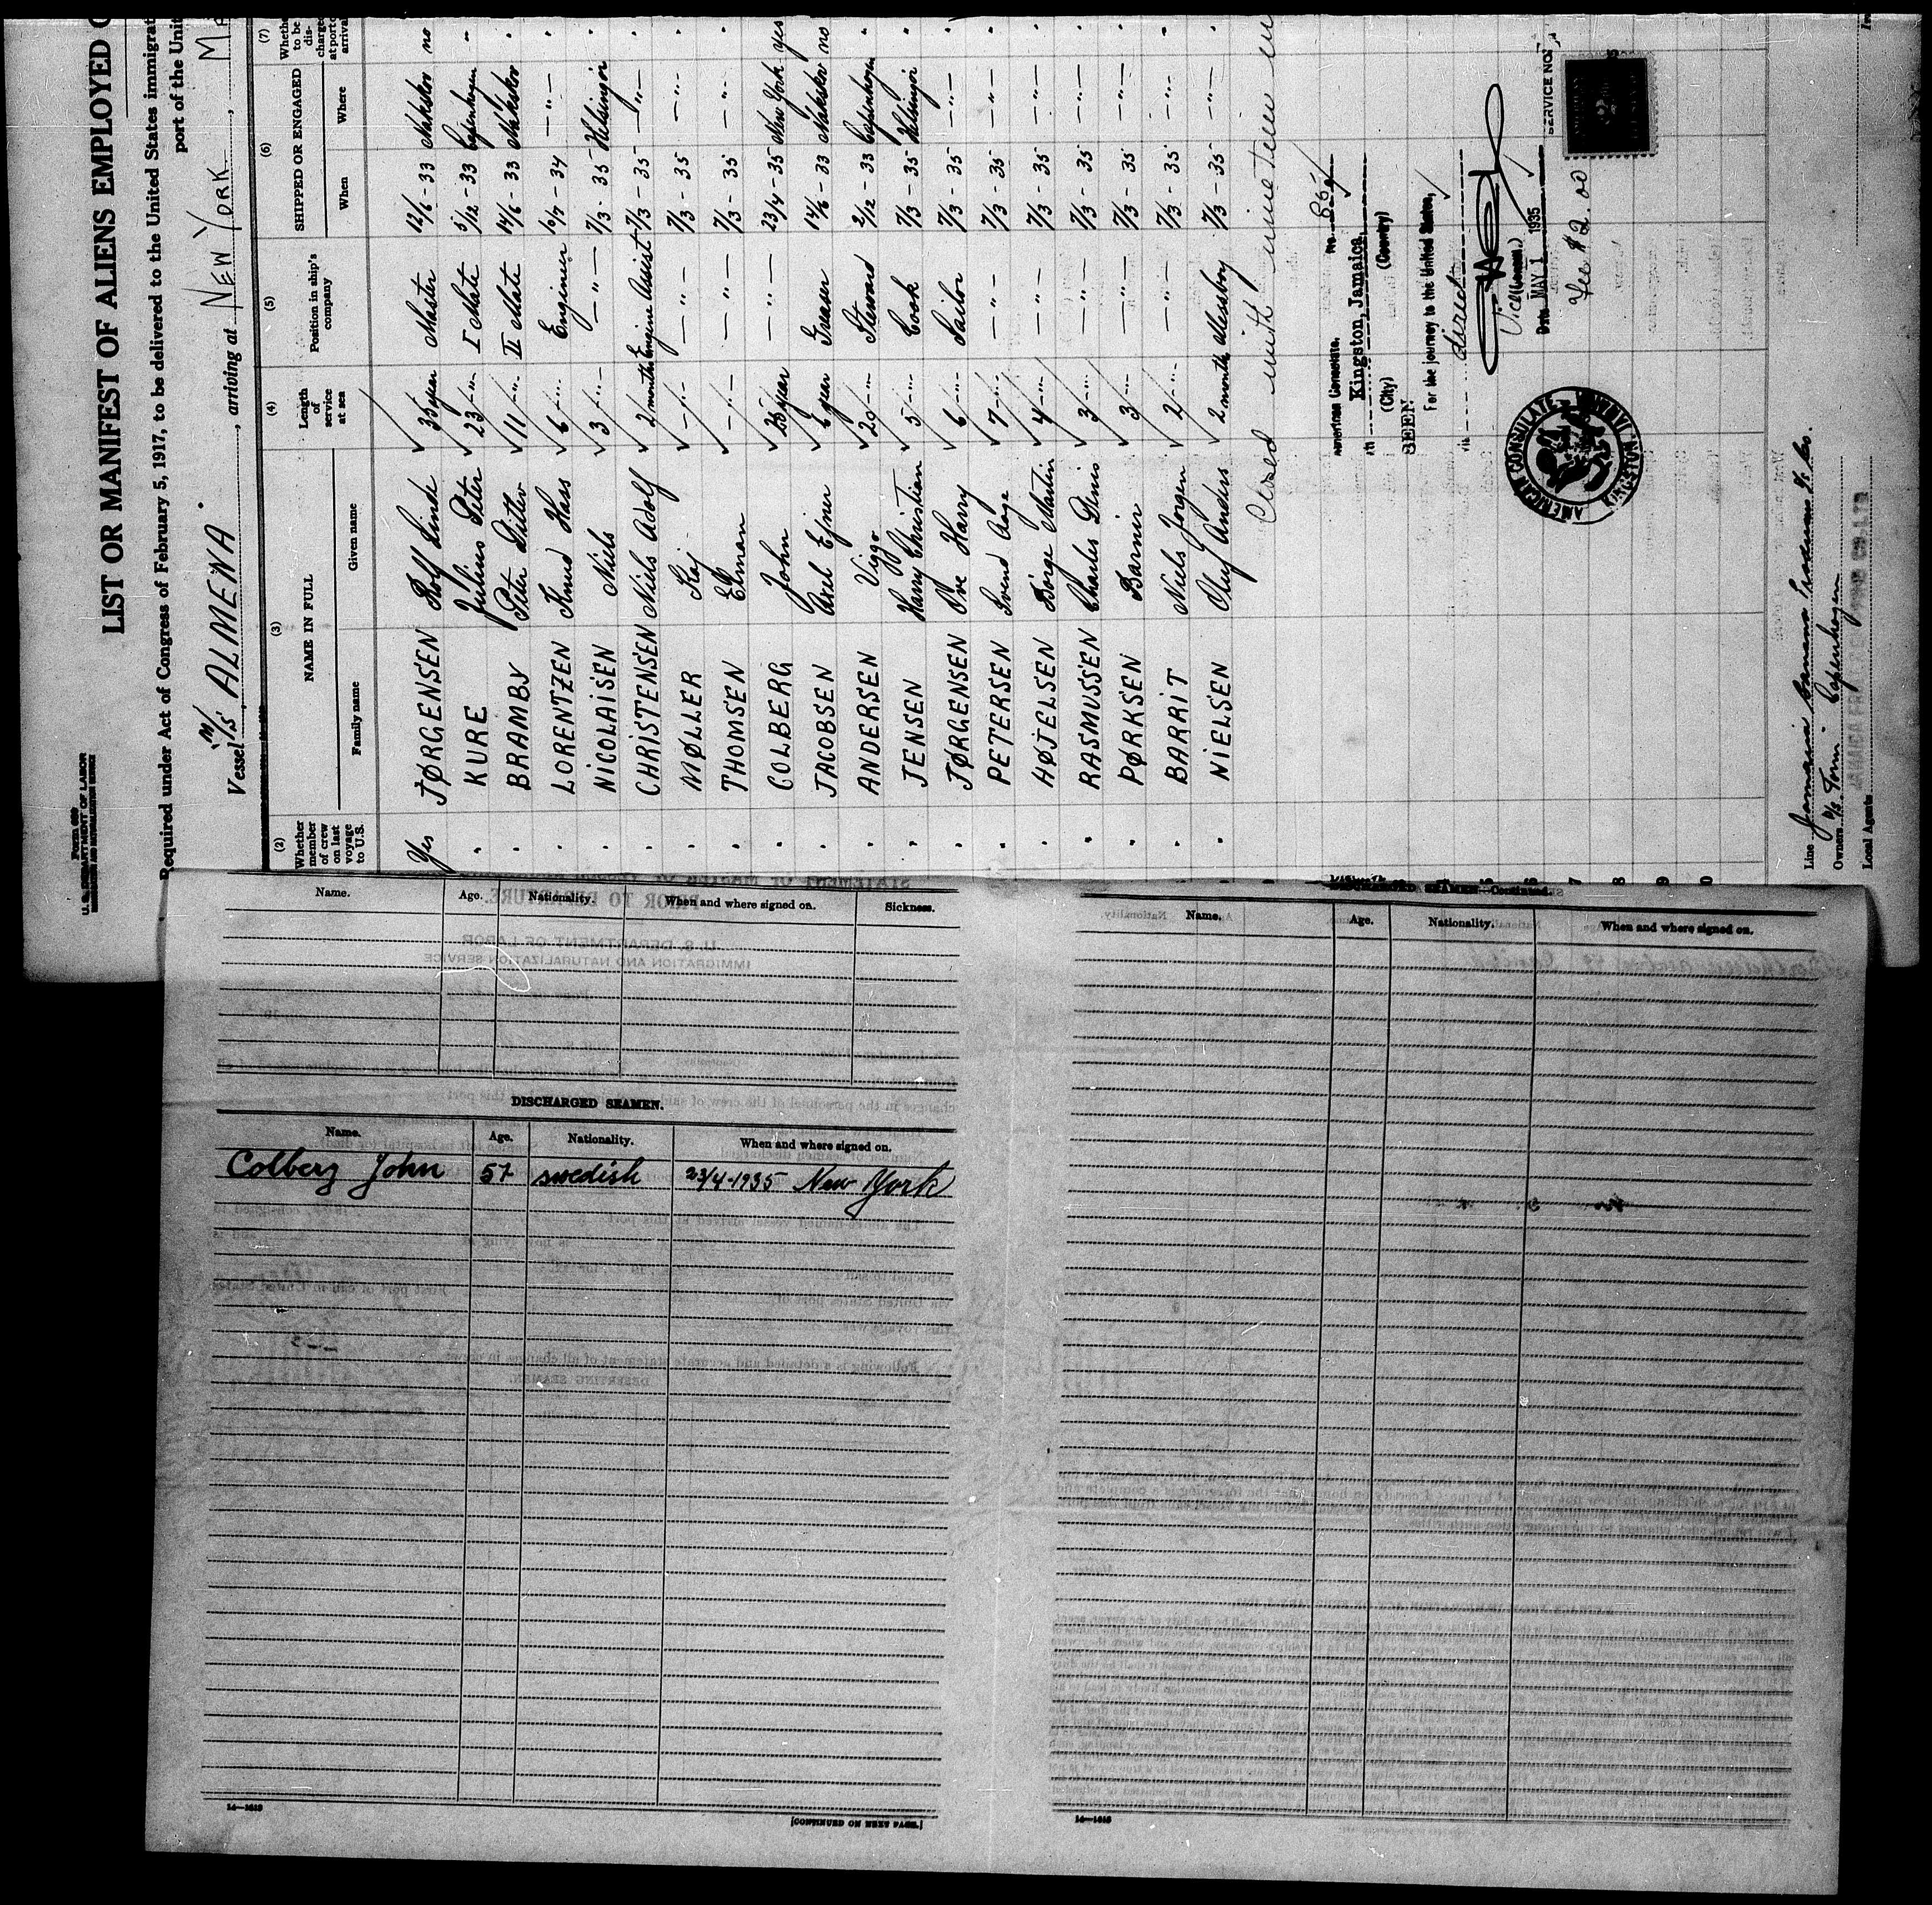 Form 680
U. S. DEPARTMENT OF LABOR
IMMIGRATION AND NATURALIZATION SERVICE
LIST OR MANIFEST OF ALIENS EMPLOYED O
Required under Act of Congress of February 5, 1917, to be delivered to the United States immigrat
port of the Unit
Vessel M/S ALMENA, arriving at NEW YORK, M
(2) (3) (4) (5) (6) (7)
Whether member of crew on last voyage to U.S. NAME IN FULL Length of service at sea Position in ship's company SHIPPED OR ENGAGED Whethe to be dis- charged at port of arrival
Family name Given name When Where
Yes JØRGENSEN Rolf Linde 35 year Master 12/6 - 33 Nakskov no
" KURE Julius Peter 23 -"- I Mate 5/12 - 33 Copenhagen "
" BRAMBY Peter Ditlev 11 -"- II Mate 14/6 - 33 Nakskov "
" LORENTZEN Knud Hass 6 -"- Engineer 16/7 - 34 -"- "
" NICOLAISEN Niels 3 -"- -"- 7/3 - 35 Helsingör "
" CHRISTENSEN Niels Adolf 2 months Engine Assist 7/3 - 35 -"- "
" MØLLER Kaj -"- -"- 7/3 - 35 -"- "
" THOMSEN Elman -"- -"- 7/3 - 35 -"- "
COLBERG John 25 year -"- 23/4 - 35 New York yes
" JACOBSEN Axel Ejner 6 year Greaser 14/6 - 33 Nakskov no
" ANDERSEN Viggo 20 -"- Steward 2/12 - 33 Copenhagen "
" JENSEN Harry Christian 5 -"- Cook 7/3 - 35 Helsingör "
" JØRGENSEN Ove Harry 6 -"- Sailor 7/3 - 35 -"- "
" PETERSEN Svend Aage 7 -"- -"- 7/3 - 35 -"- "
" HØJELSEN Börge Martin 4 -"- -"- 7/3 - 35 -"- "
" RASMUSSEN Charles Denis 3 -"- -"- 7/3 - 35 -"- "
" PØRKSEN Barnir 3 -"- -"- 7/3 - 35 -"- "
" BARRIT Niels Jorgen 2 -"- -"- 7/3 - 35 -"- "
" NIELSEN Oluf Anders 2 month Messboy 7/3 - 35 -"- "
Closed with nineteen
American Consulate. No.
in Kingston, Jamaica,
(City) (Country)
SEEN
For the journey to the United States,
direct
Vice Consul
Date MAY 1 1935
SERVICE NO.
Fee $2.00
AMERICAN CONSULATE
KINGSTON, JAMAICA
Line Jamaica Banana
Owners Copenhagen
Local Agents
Name. Age. Nationality. When and where signed on. Sickness.
DISCHARGED SEAMEN.
Name. Age. Nationality. When and where signed on.
Colberg John 57 swedish 23/4-1935 New York
14—1618
[CONTINUED ON NEXT PAGE.]
DISCHARGED SEAMEN—Continued.
Name. Age. Nationality. When and where signed on.
14—1618